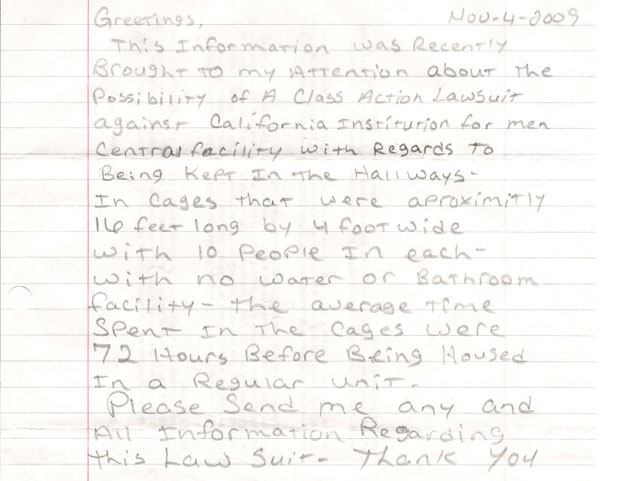 Greetings, Nov-4-2009
This Information was Recently
Brought To my Attention about The
Possibility of A Class Action Lawsuit
against California Institution for men
Central facility with Regards To
Being Kept In The Hallways-
In Cages that were aproximitly
16 feet long by 4 foot wide
with 10 People In each-
with no water or Bathroom
facility- the average Time
Spent In The Cages were
72 Hours Before Being Housed
In a Regular unit.
Please Send me any and
All Information Regarding
this Law Suit- Thank You